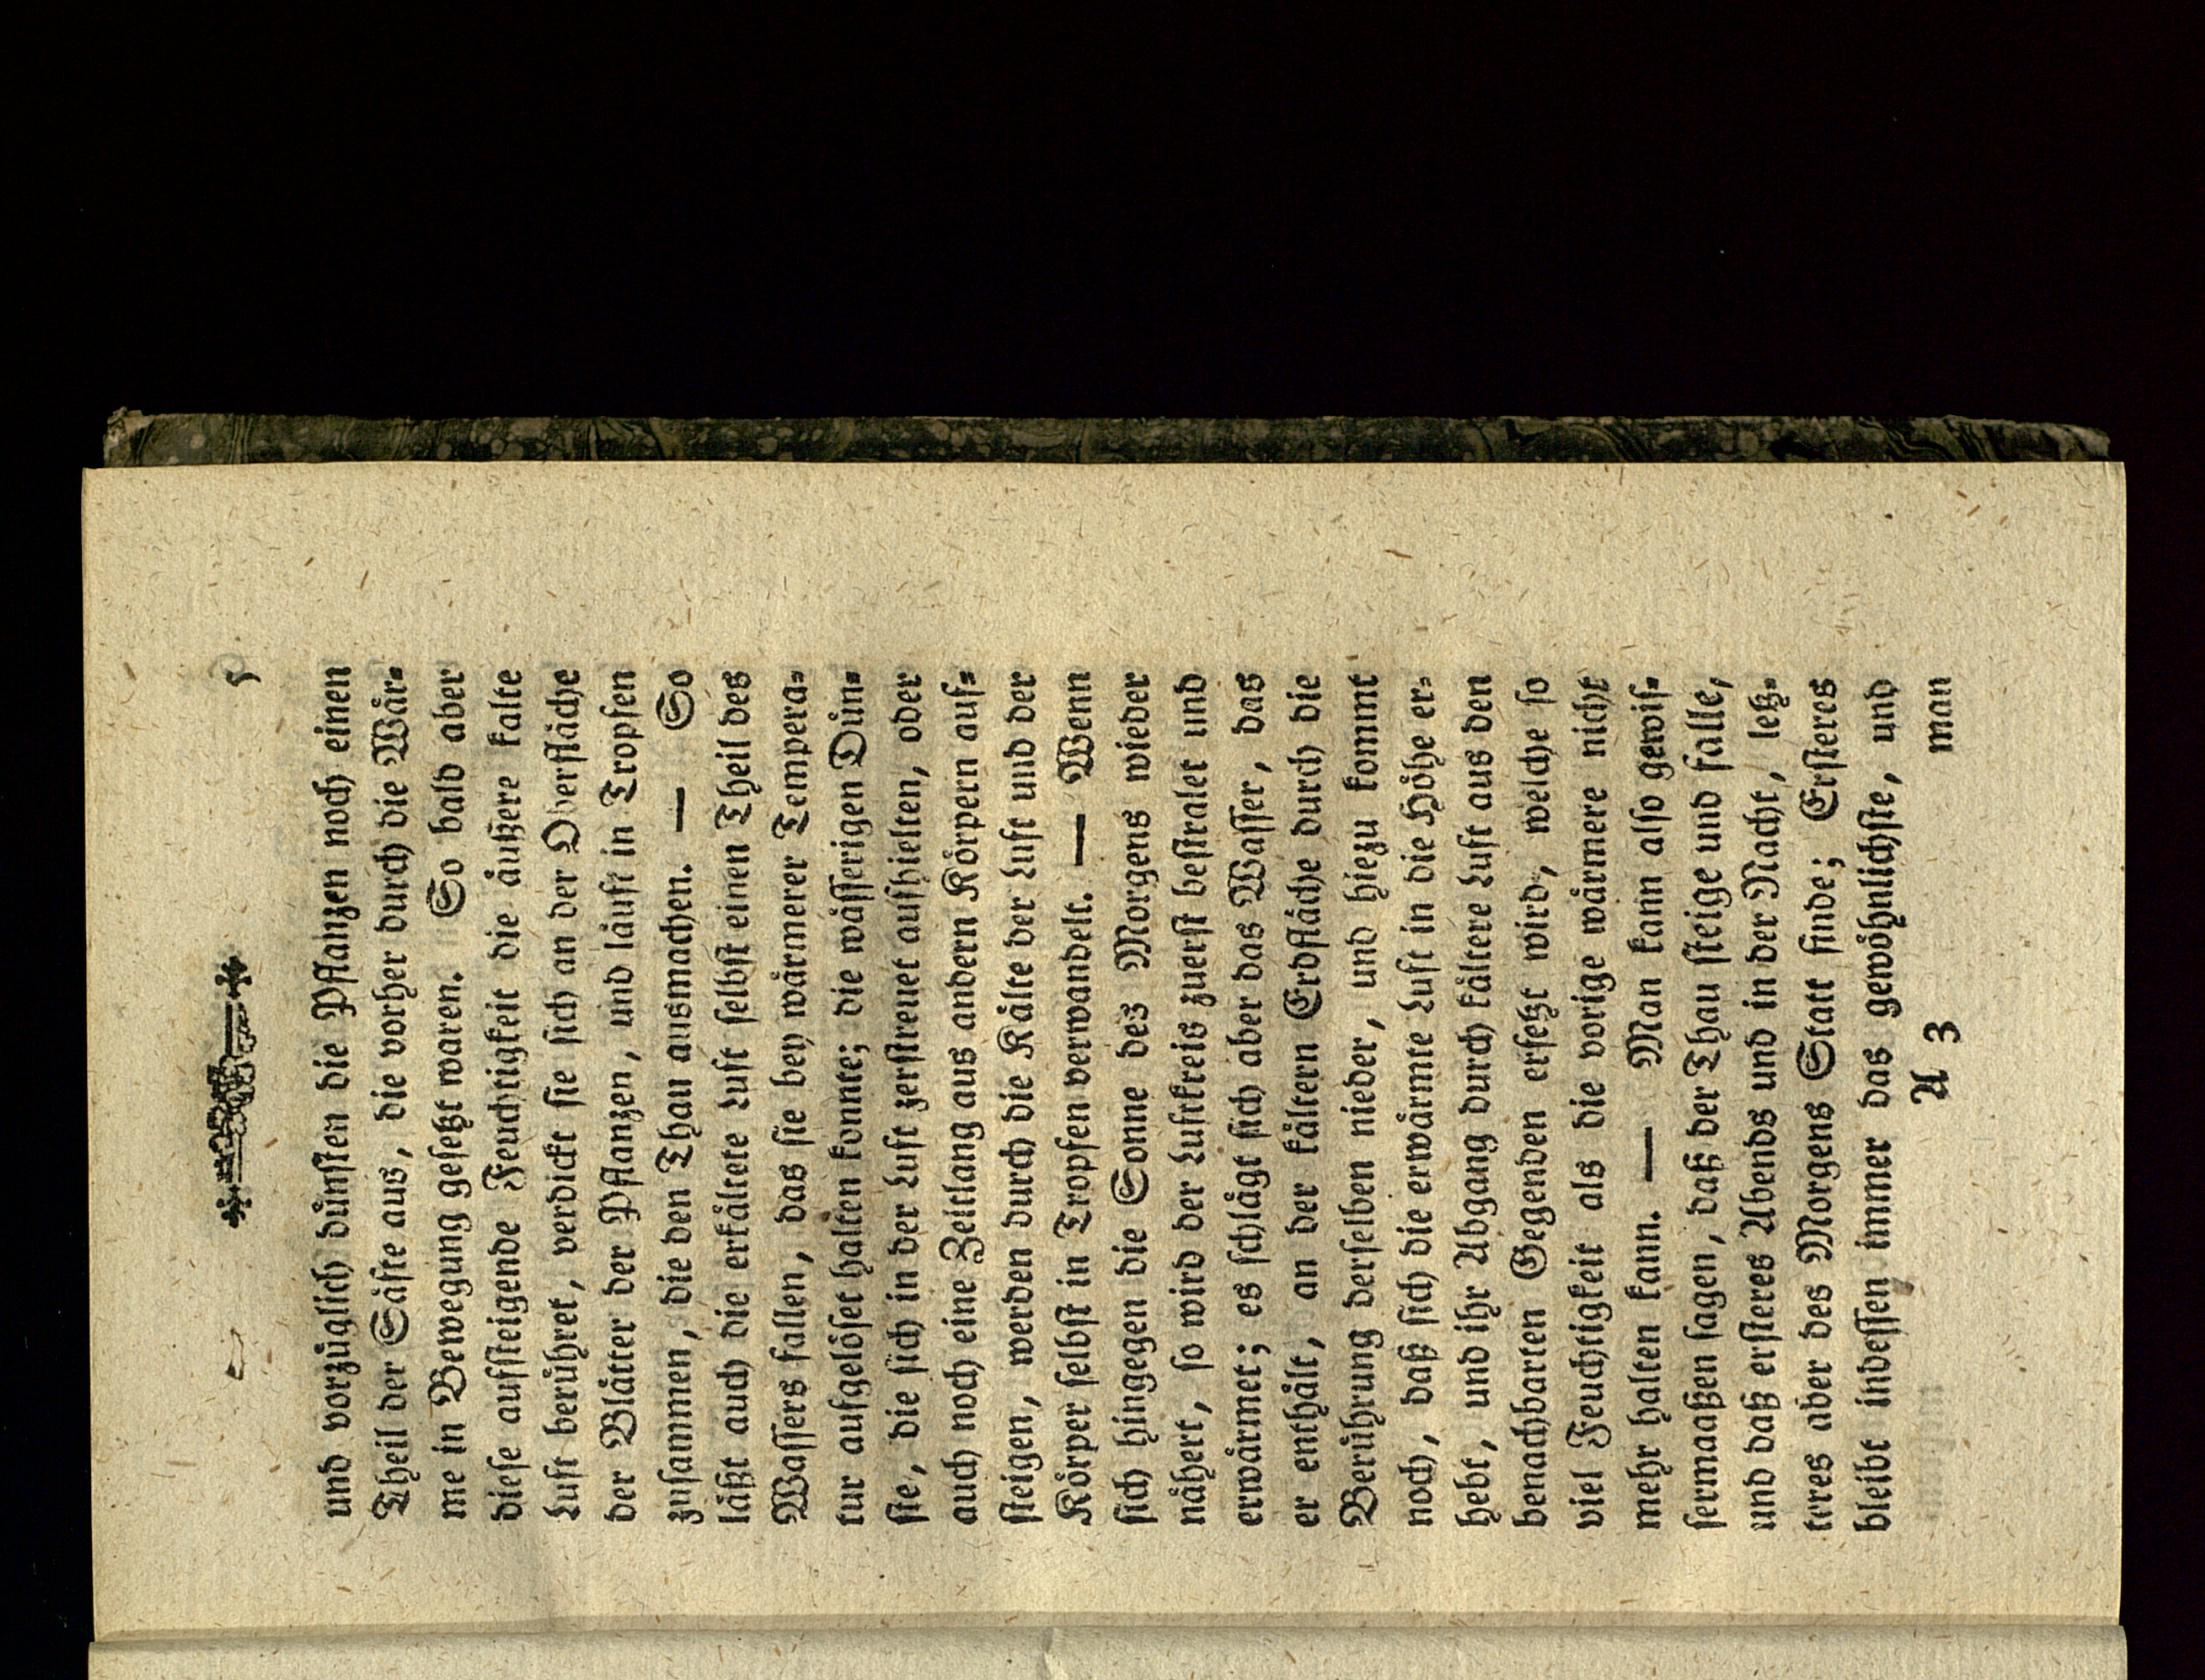 5
und vorzüglich dünsten die Pflanzen noch einen
Theil der Säfte aus, die vorher durch die Wär-
me in Bewegung gesetzt waren. So bald aber
diese aufsteigende Feuchtigkeit die äußere kalte
Luft berühret, verdickt sie sich an der Oberfläche
der Blätter der Pflanzen, und läuft in Tropfen
zusammen, die den Thau ausmachen. — So
läßt auch die erkältete Luft selbst einen Theil des
Wassers fallen, das sie bey wärmerer Tempera-
tur aufgelöset halten konnte; die wässerigen Dün-
ste, die sich in der Luft zerstreuet aufhielten, oder
auch noch eine Zeitlang aus andern Körpern auf-
steigen, werden durch die Kälte der Luft und der
Körper selbst in Tropfen verwandelt. — Wenn
sich hingegen die Sonne des Morgens wieder
nähert, so wird der Luftkreis zuerst bestralet und
erwärmet; es schlägt sich aber das Wasser, das
er enthält, an der kältern Erdfläche durch die
Berührung derselben nieder, und hiezu kommt
noch, daß sich die erwärmte Luft in die Höhe er-
hebt, und ihr Abgang durch kältere Luft aus den
benachbarten Gegenden ersetzt wird, welche so
viel Feuchtigkeit als die vorige wärmere nicht
mehr halten kann. — Man kann also gewis-
sermaaßen sagen, daß der Thau steige und falle,
und daß ersteres Abends und in der Nacht, letz-
teres aber des Morgens Statt finde; Ersteres
bleibt indessen immer das gewöhnlichste, und
A 3 man